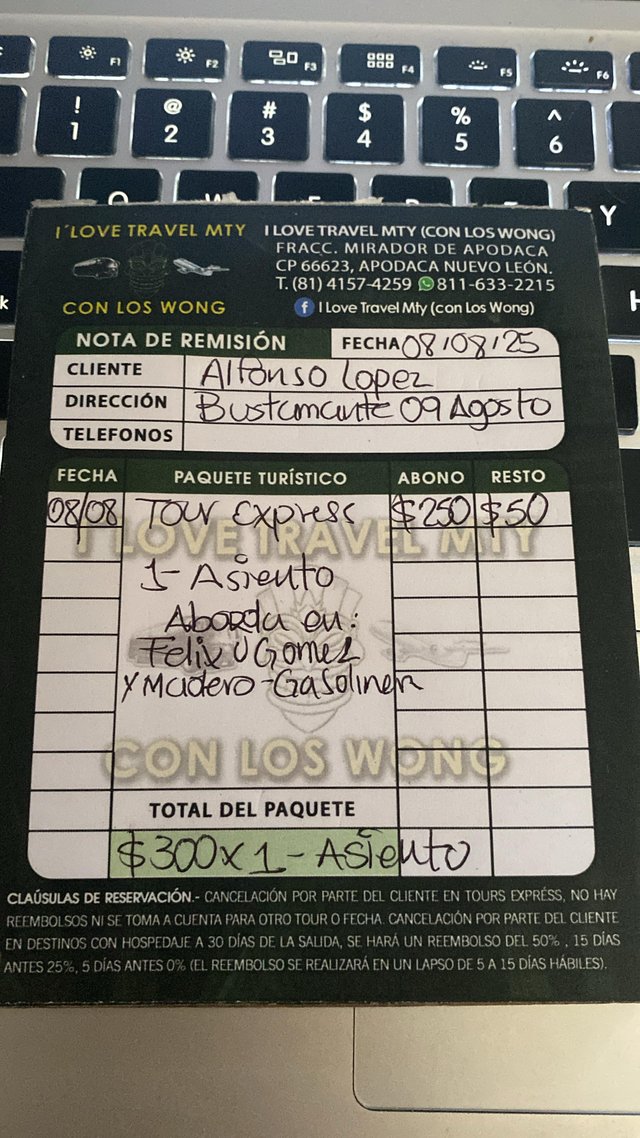 F1 F2 F3 F4 F5 F6
! 1 @ 2 # 3 $ 4 % 5 ^ 6
Y
I LOVE TRAVEL MTY
CON LOS WONG
I LOVE TRAVEL MTY (CON LOS WONG)
FRACC. MIRADOR DE APODACA
CP 66623, APODACA NUEVO LEÓN.
T. (81) 4157-4259 811-633-2215
f I Love Travel Mty (con Los Wong)
NOTA DE REMISIÓN FECHA 08/08/25
CLIENTE Alfonso Lopez
DIRECCIÓN Bustamante 09 Agosto
TELEFONOS
FECHA PAQUETE TURÍSTICO ABONO RESTO
08/08 Tour Express $250 $50
I LOVE TRAVEL MTY
1- Asiento
Aborda en:
Felix U Gomez
y Madero - Gasolinera
CON LOS WONG
TOTAL DEL PAQUETE
$300 x 1 - Asiento
CLAÚSULAS DE RESERVACIÓN.- CANCELACIÓN POR PARTE DEL CLIENTE EN TOURS EXPRÉSS, NO HAY
REEMBOLSOS NI SE TOMA A CUENTA PARA OTRO TOUR O FECHA. CANCELACIÓN POR PARTE DEL CLIENTE
EN DESTINOS CON HOSPEDAJE A 30 DÍAS DE LA SALIDA, SE HARÁ UN REEMBOLSO DEL 50% , 15 DÍAS
ANTES 25%, 5 DÍAS ANTES 0% (EL REEMBOLSO SE REALIZARÁ EN UN LAPSO DE 5 A 15 DÍAS HÁBILES).